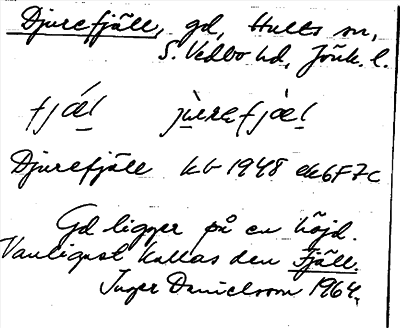 Djurefjäll, gd, Hults sn,
S. Vedbo hd, Jönk. l.
fjǽl jùrefjæl
Djurefjäll kb 1948 ek 6F7c
Gd ligger på en höjd.
Vanligast kallas den Fjäll.
Inger Danielsson 1964.